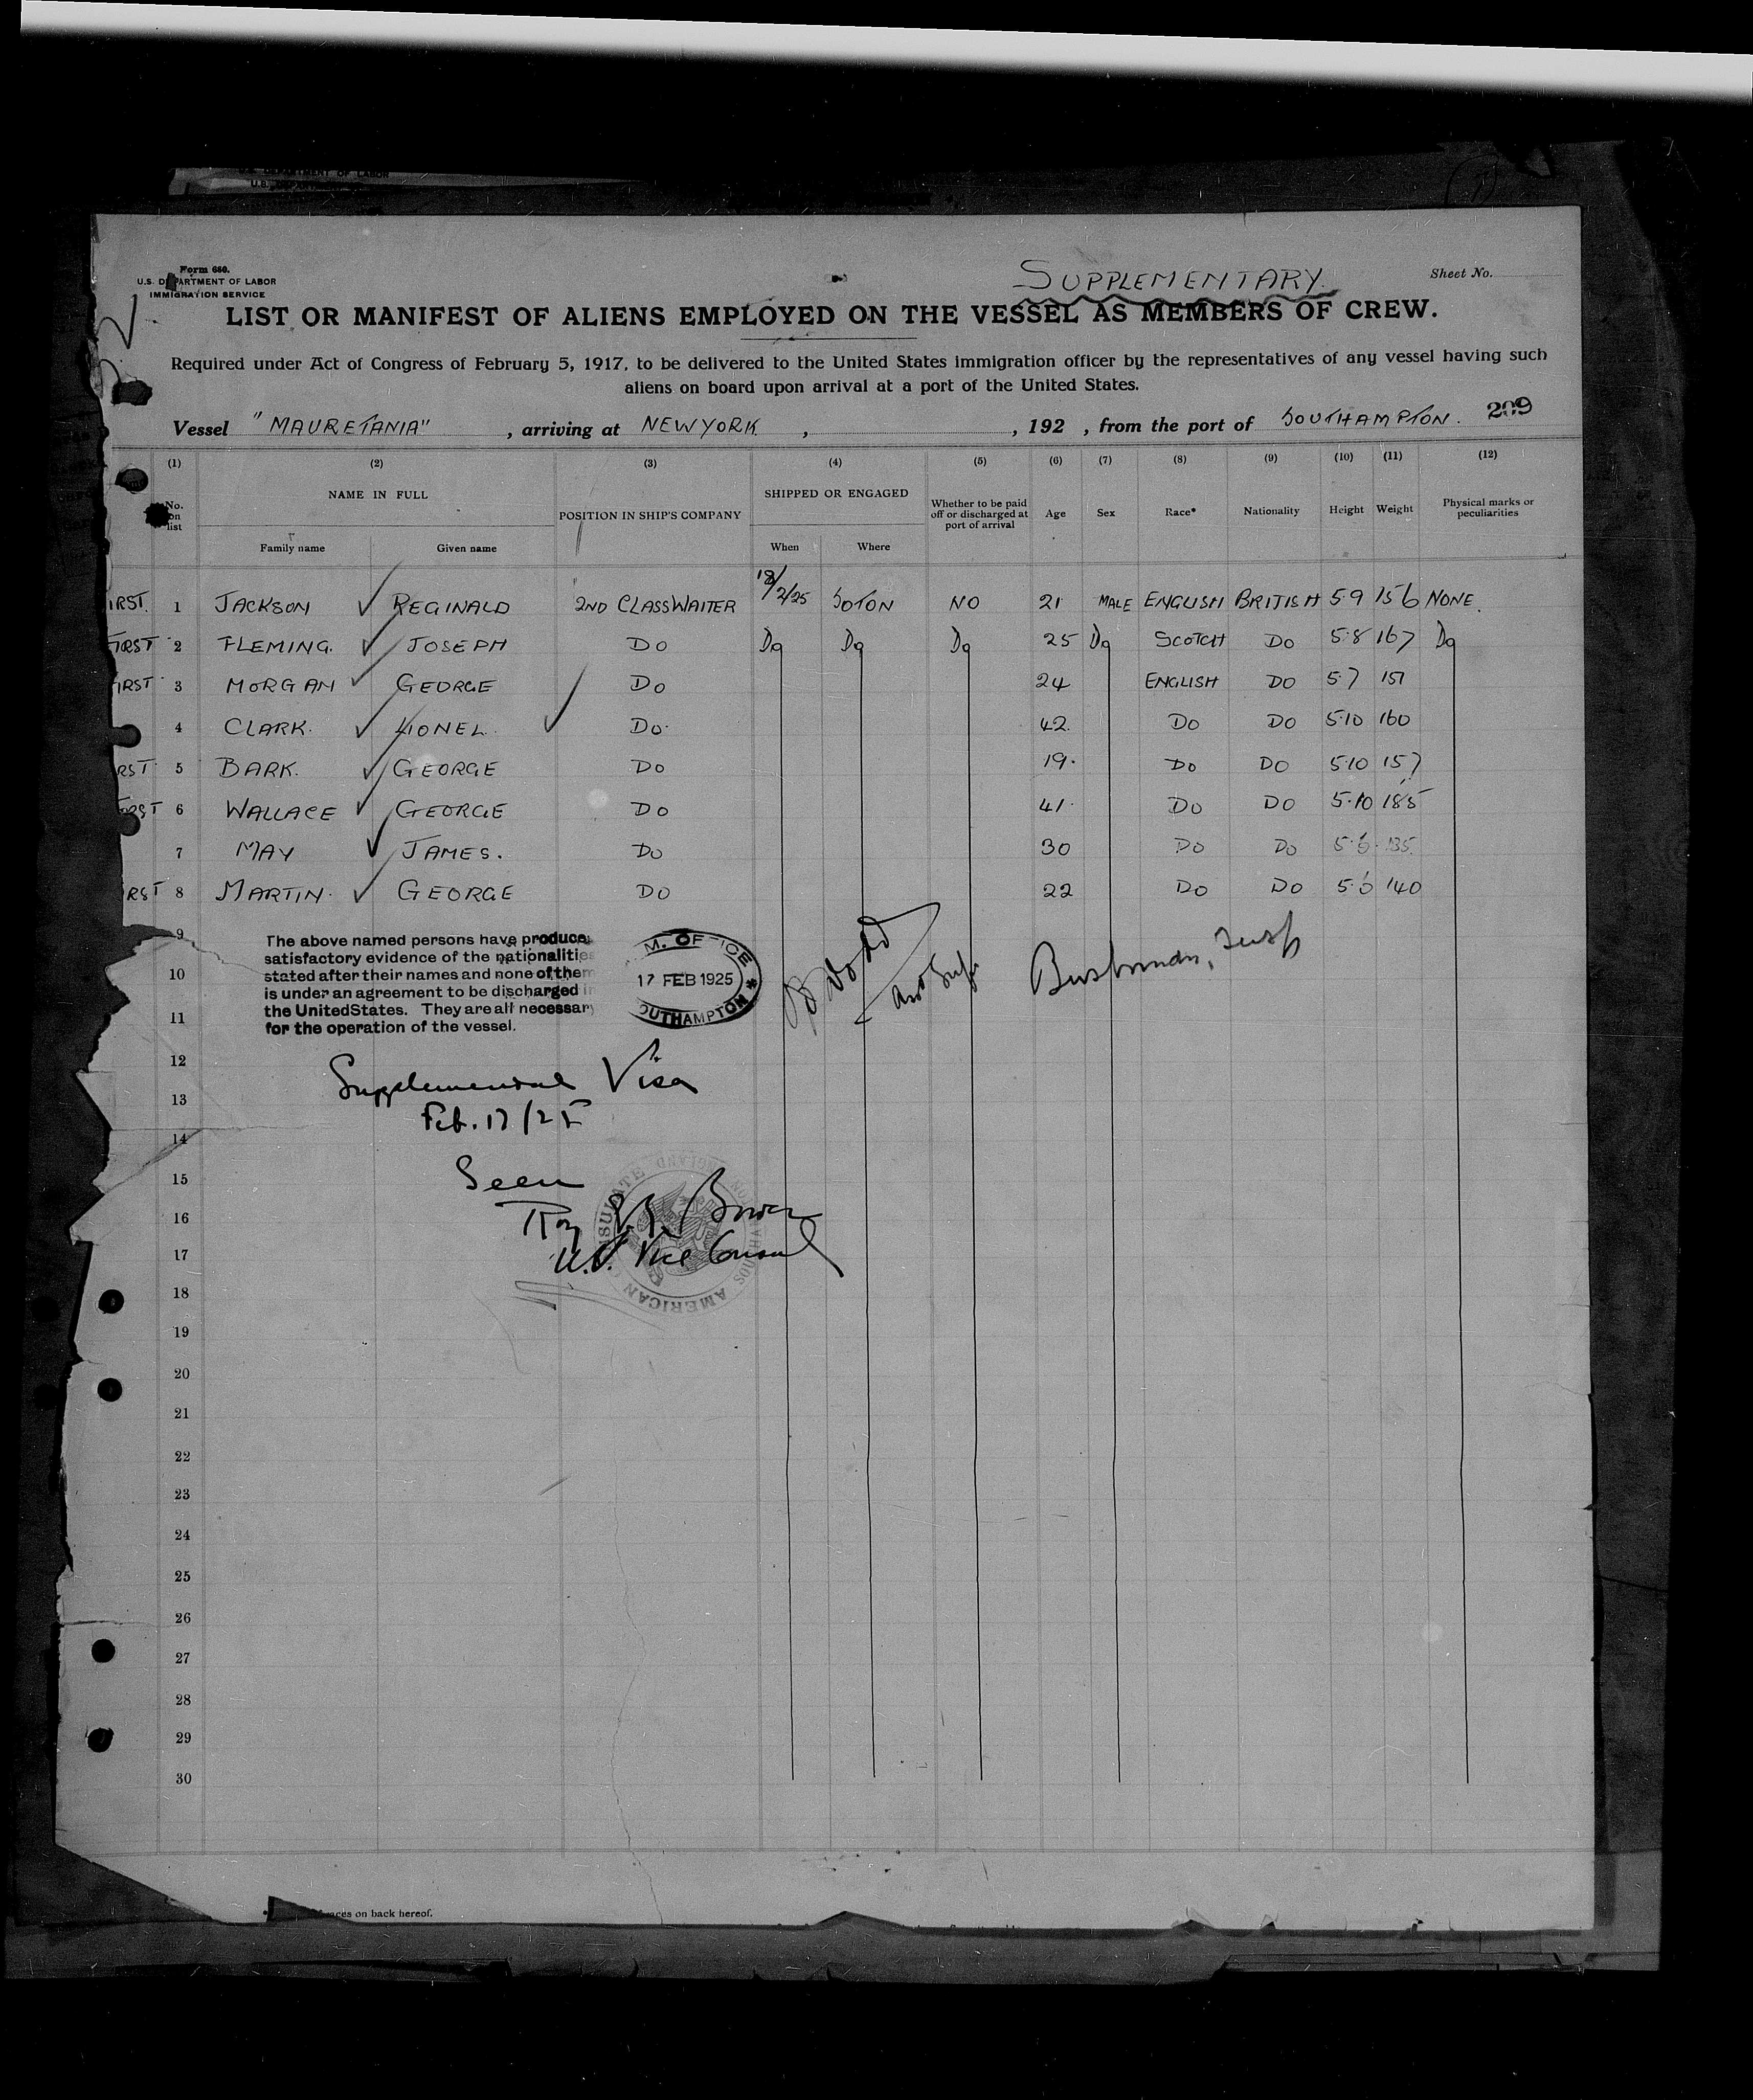 U.S. DEPARTMENT OF LABOR
Form 680.
U.S. DEPARTMENT OF LABOR
IMMIGRATION SERVICE
SUPPLEMENTARY.
Sheet No.
LIST OR MANIFEST OF ALIENS EMPLOYED ON THE VESSEL AS MEMBERS OF CREW.
Required under Act of Congress of February 5, 1917, to be delivered to the United States immigration officer by the representatives of any vessel having such
aliens on board upon arrival at a port of the United States.
Vessel "MAURETANIA", arriving at NEW YORK, , 192 , from the port of SOUTHAMPTON. 209
(1) (2) (3) (4) (5) (6) (7) (8) (9) (10) (11) (12)
No. on list NAME IN FULL POSITION IN SHIP'S COMPANY SHIPPED OR ENGAGED Whether to be paid off or discharged at port of arrival Age Sex Race* Nationality Height Weight Physical marks or peculiarities
Family name Given name When Where
IRST. 1 JACKSON REGINALD 2ND CLASS WAITER 18/2/25 SOTON NO 21 MALE ENGLISH BRITISH 5 9 156 NONE.
FIRST 2 FLEMING. JOSEPH DO Do Do Do 25 Do SCOTCH DO 5·8 167 Do
IRST 3 MORGAN GEORGE DO 24 ENGLISH DO 5·7 151
4 CLARK. LIONEL. DO· 42. DO DO 5·10 160
RST 5 BARK. GEORGE DO 19· DO DO 5·10 157
RST 6 WALLACE GEORGE DO 41· DO DO 5·10 185
7 MAY JAMES. DO 30 DO DO 5·6 135
RST 8 MARTIN. GEORGE DO 22 DO DO 140
9
The above named persons have produce
satisfactory evidence of the nationalities
10
stated after their names and none of them
is under an agreement to be discharged in
11
the United States. They are all necessary
for the operation of the vessel.
M. OFFICE
17 FEB 1925
SOUTHAMPTON
12
Supplemental Visa
13
Feb. 17/25
14
15
Seen
16
Roy
17
U.S. Vice Consul
AMERICAN CONSULATE
SOUTHAMPTON ENGLAND
18
19
20
21
22
23
24
25
26
27
28
29
30
ces on back hereof.